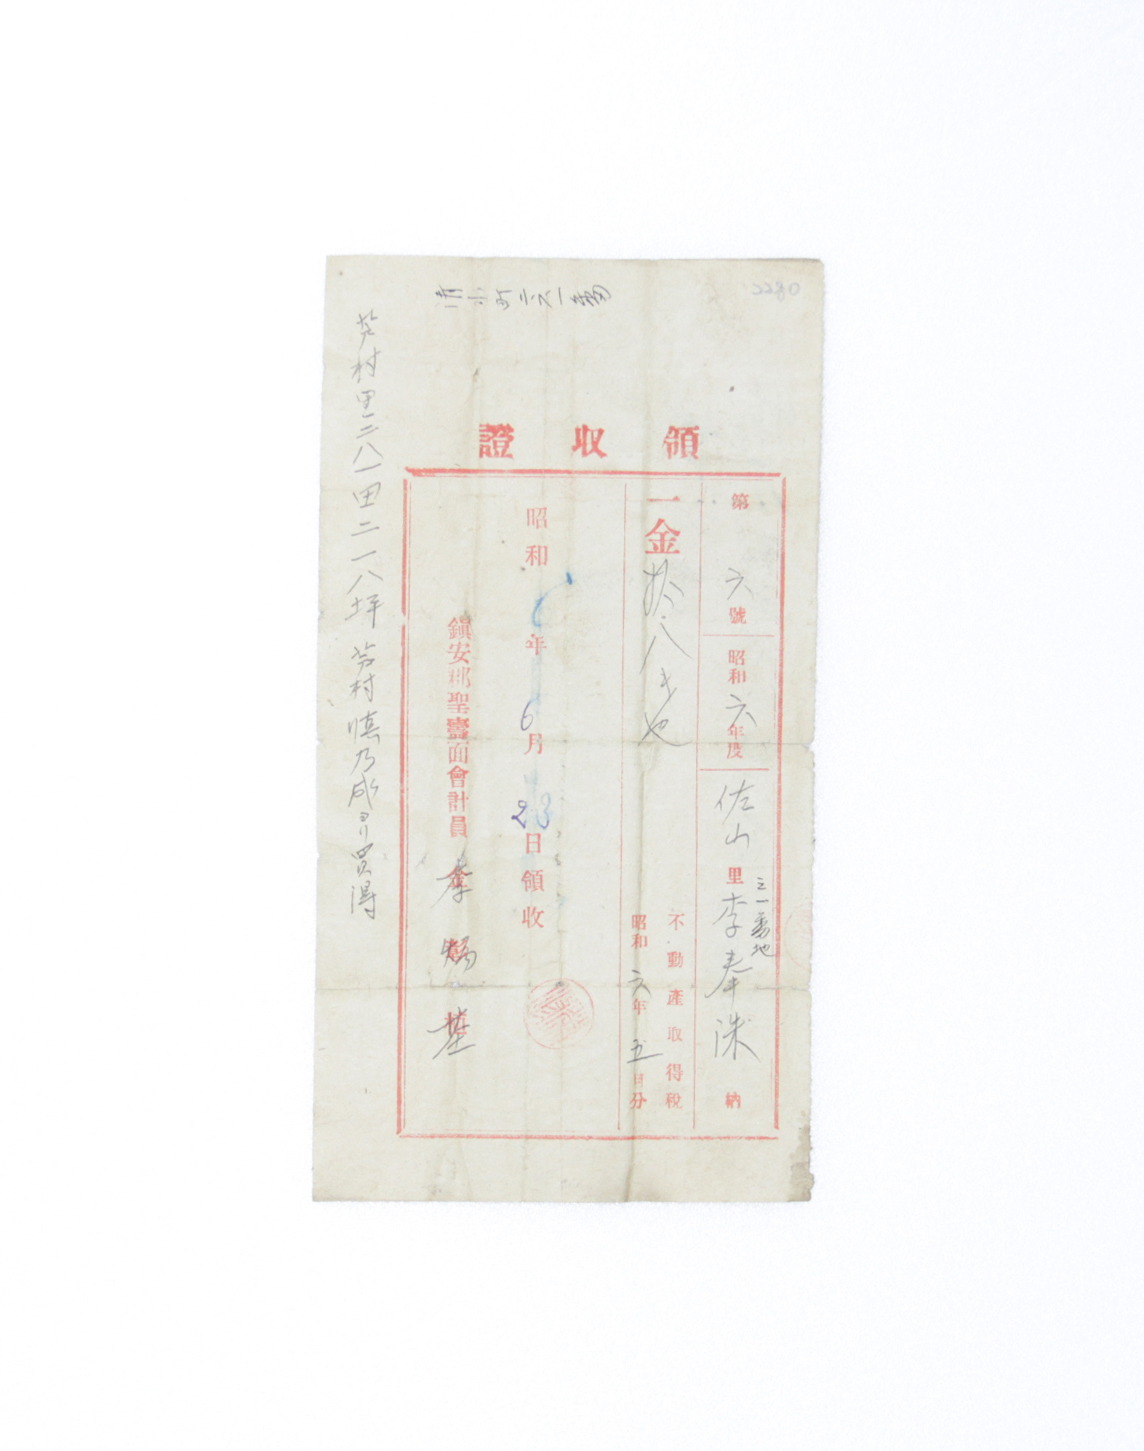 2280
領收證
第六號 昭和六年度 佐山里三一番地 李奉洙 納
一金拾八戈也
不動產取得稅
昭和六年五月分
昭和6年6月23日領收
鎭安郡聖壽面會計員 李賜基
村里二八一田二一八坪 村愼乃成ヨリ買得